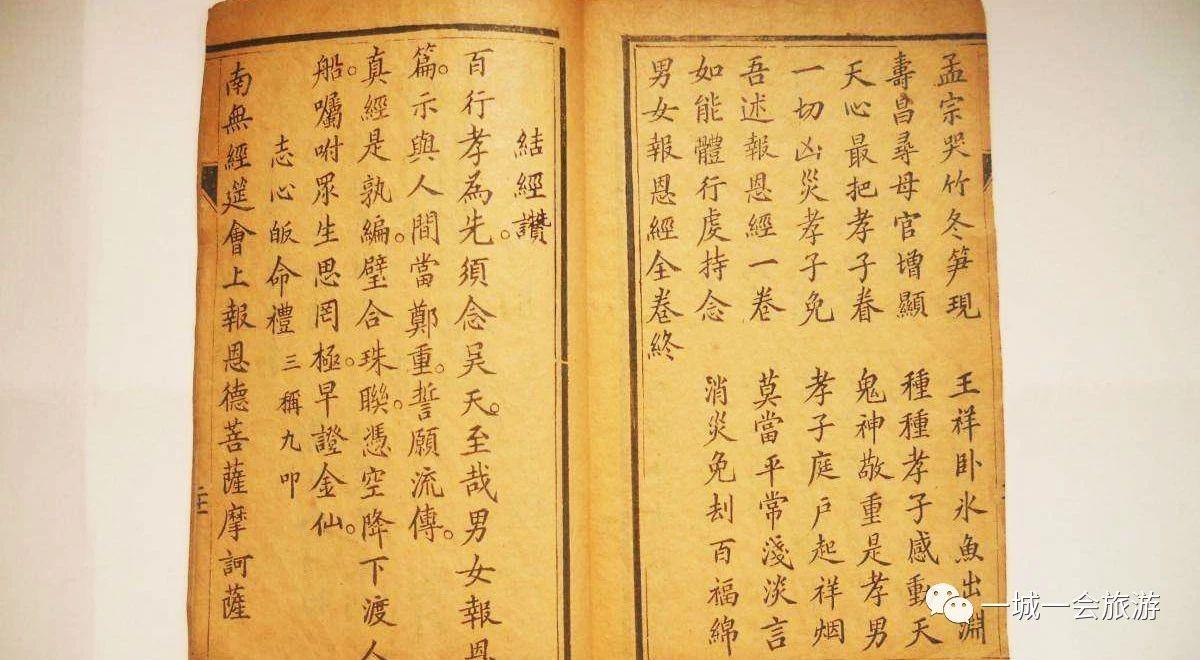 孟宗哭竹冬笋現 王祥卧氷魚出淵
壽昌尋母官增顯 種種孝子感動天
天心最把孝子眷 鬼神敬重是孝男
一切凶災孝子免 孝子庭戶起祥烟
吾述報恩經一卷 莫當平常淺淡言
如能體行虔持念 消災免刦百福綿
男女報恩經全卷終
結經讚
百行孝為先。須念吴天。至哉男女報恩
篇。示與人間當鄭重。誓願流傳。
真經是孰編。璧合珠聯。憑空降下渡人
船。囑咐眾生思罔極。早證金仙。
志心皈命禮 三稱九叩
南無經筵會上報恩德菩薩摩訶薩
一城一会旅游